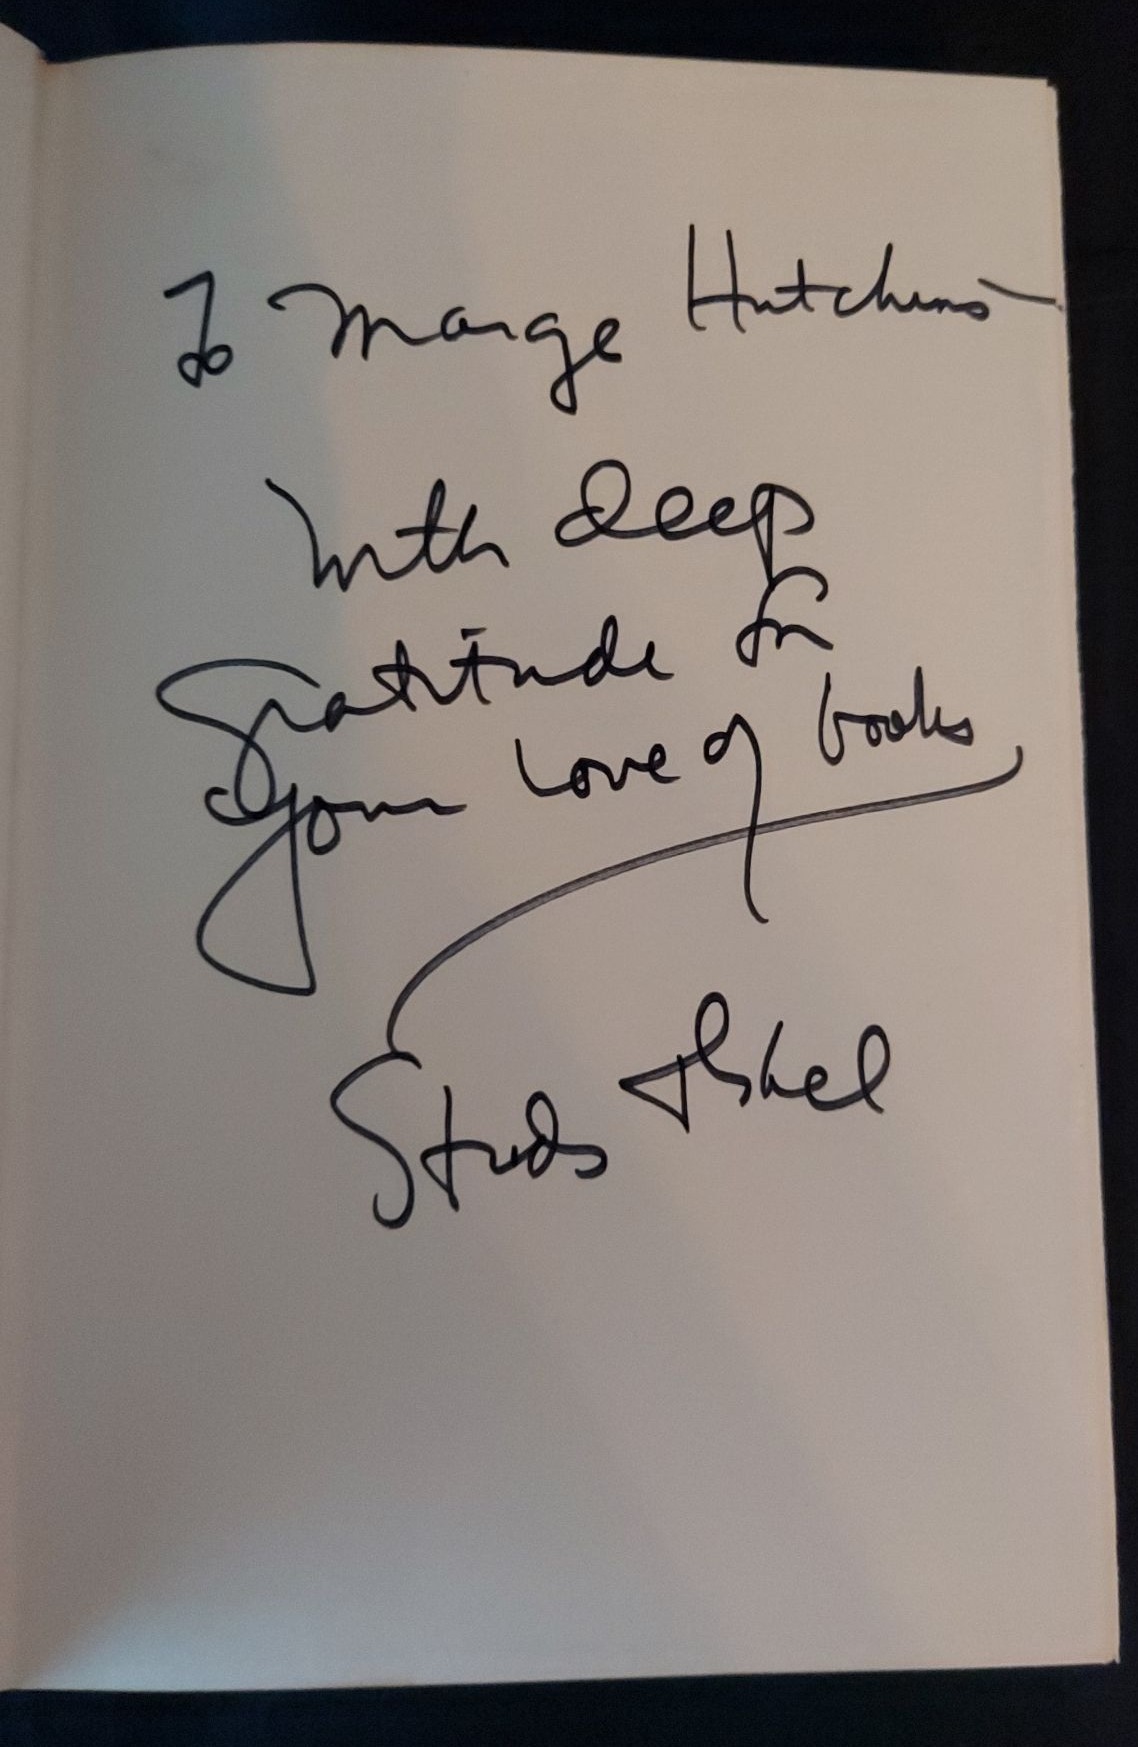 To Marge Hutchins—
With deep
gratitude for
your love of books
Studs Terkel